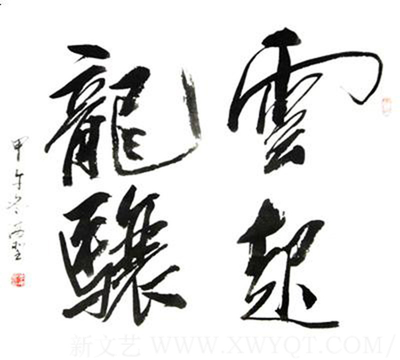 雲起
龍驤
甲午冬
新文艺 WWW.XWYQT.COM/